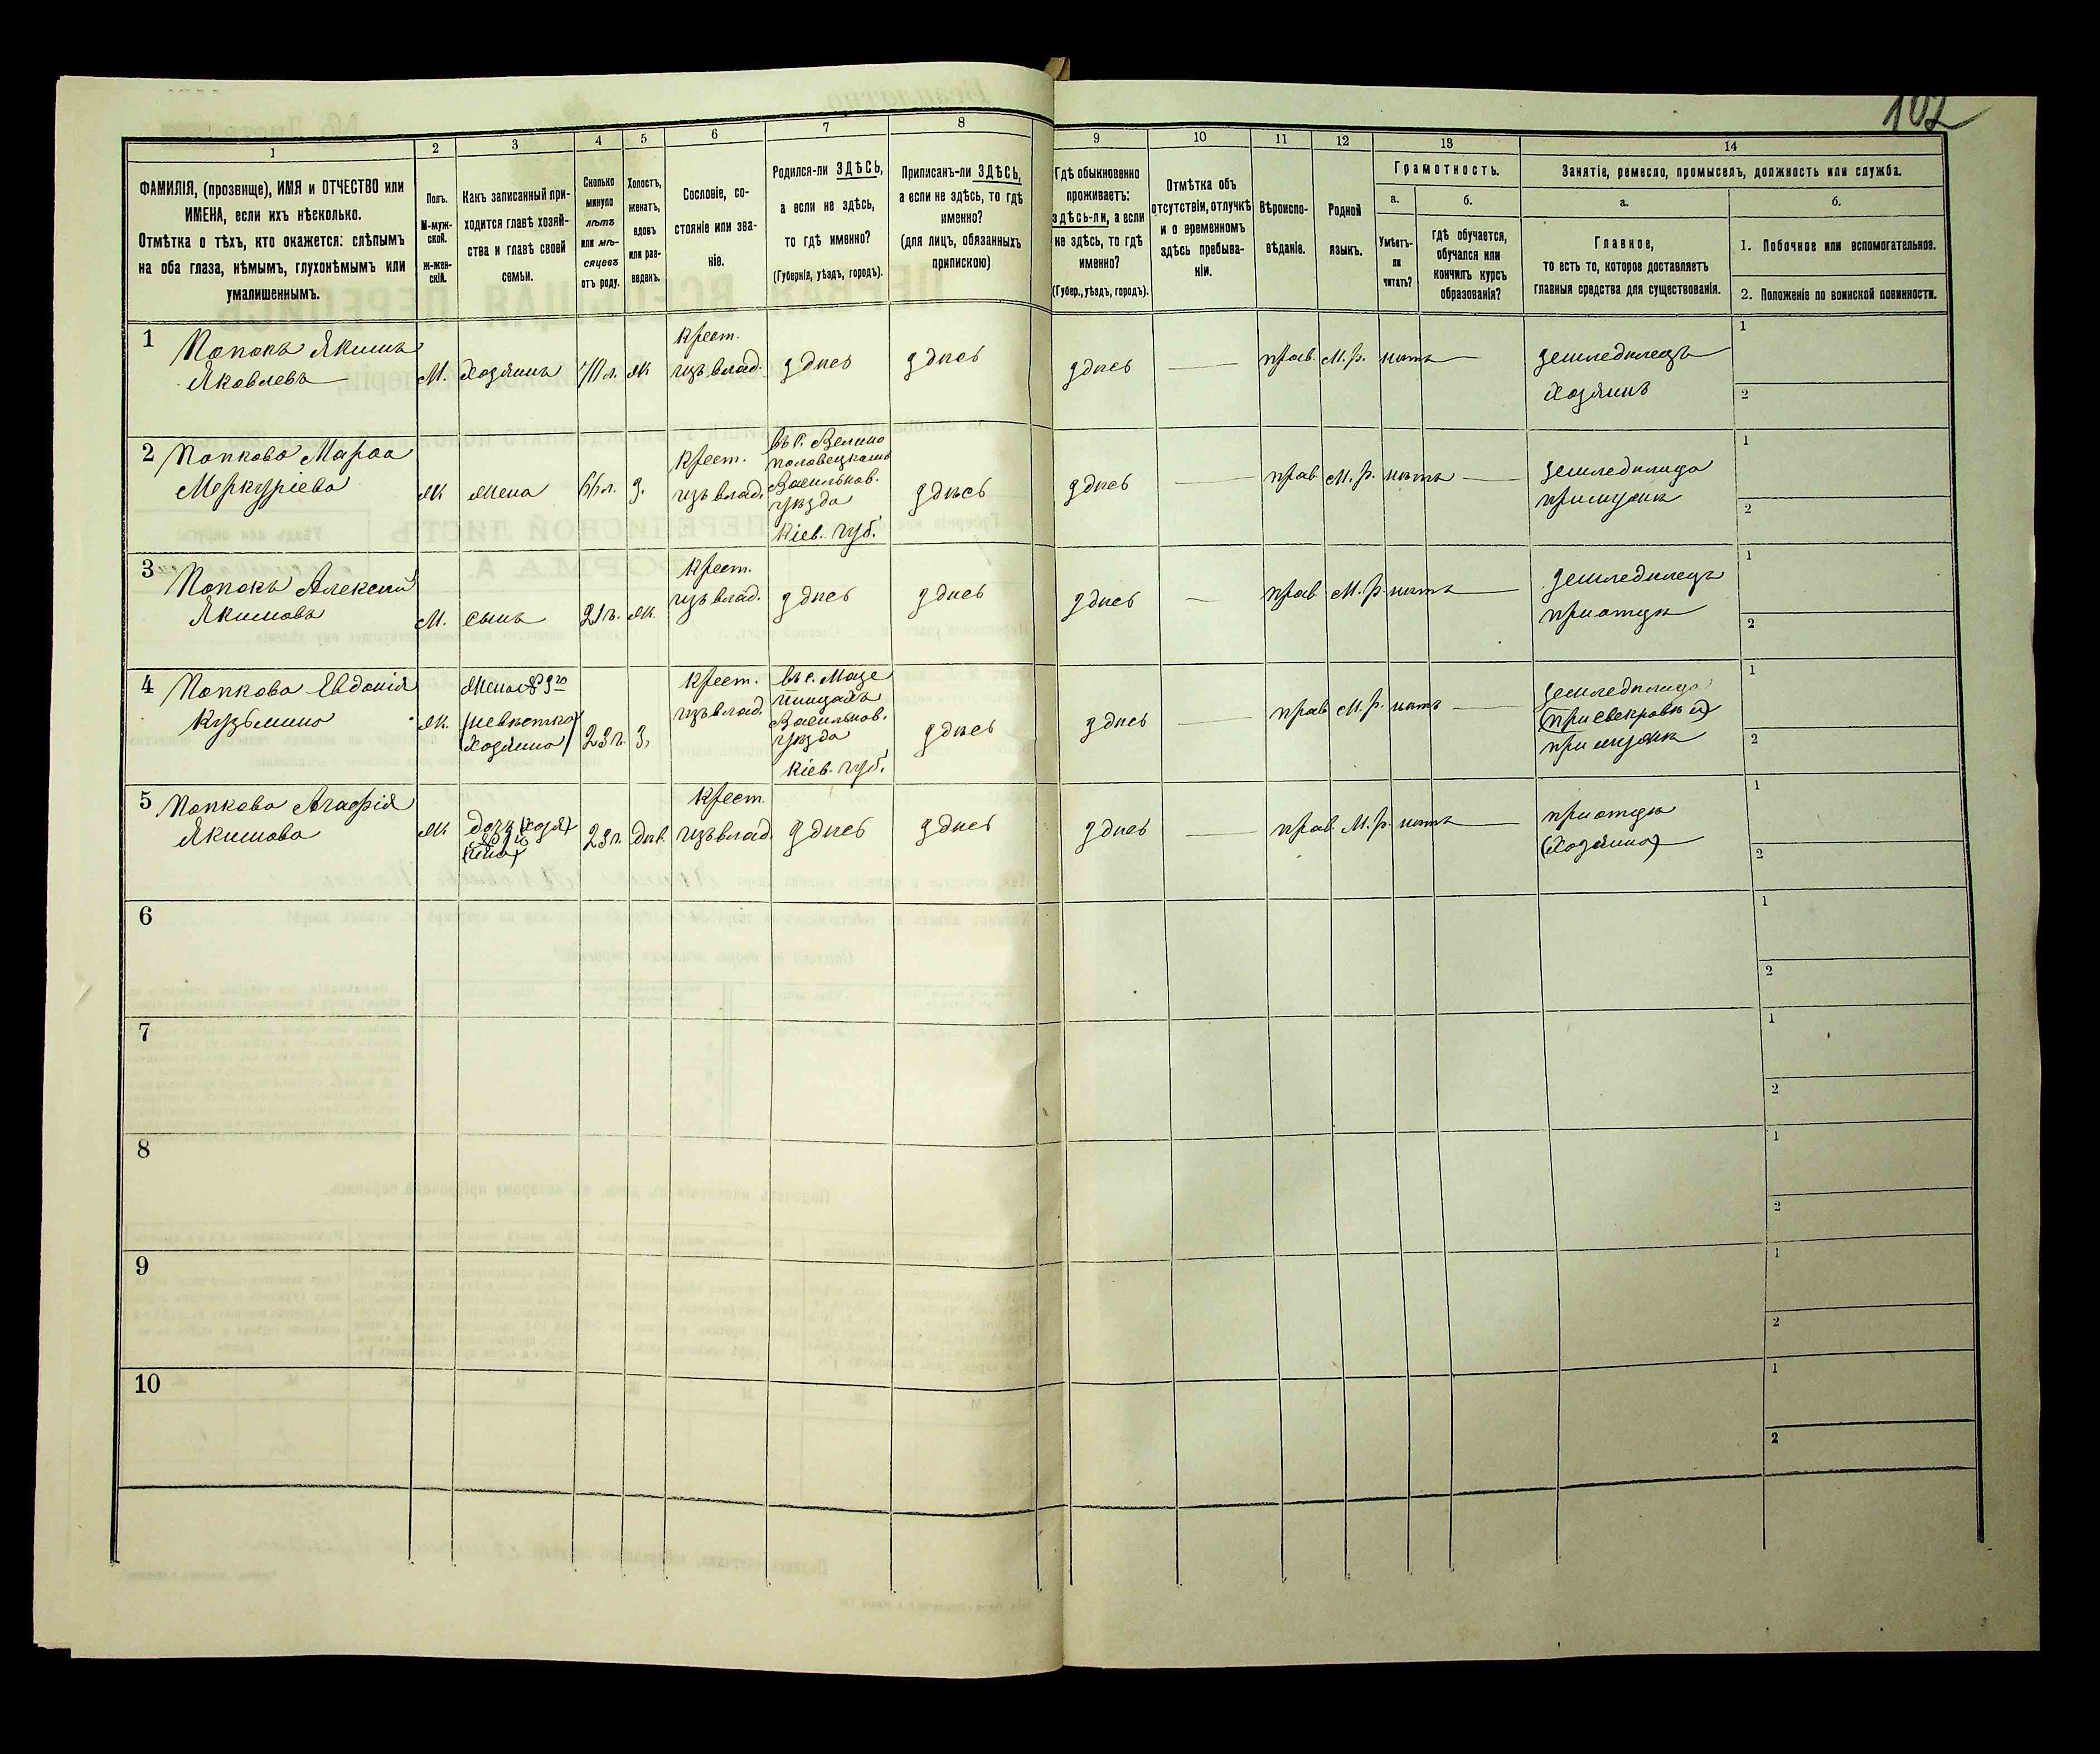 102
1
2
3
4
5
6
7
8
9
10
11
12
13
14
ФАМИЛІЯ, (прозвище), ИМЯ и ОТЧЕСТВО или
ИМЕНА, если ихъ нѣсколько.
Отмѣтка о тѣхъ, кто окажется: слѣпымъ
на оба глаза, нѣмымъ, глухонѣмымъ или
умалишеннымъ.
Полъ.
М-муж-
ской.
Ж-жен-
скій.
Какъ записанный при-
ходится главѣ хозяй-
ства и главѣ своей
семьи.
Сколько
минуло
лѣтъ
или мѣ-
сяцевъ
отъ роду.
Холостъ,
женатъ,
вдовъ
или раз-
веденъ.
Сословіе, со-
стояніе или зва-
ніе.
Родился-ли ЗДѢСЬ,
а если не здѣсь,
то гдѣ именно?
(Губернія, уѣздъ, городъ).
Приписанъ-ли ЗДѢСЬ,
а если не здѣсь, то гдѣ
именно?
(для лицъ, обязанныхъ
припискою)
Гдѣ обыкновенно
проживаетъ:
здѣсь-ли, а если
не здѣсь, то гдѣ
именно?
(Губер., уѣздъ, городъ).
Отмѣтка объ
отсутствіи, отлучкѣ
и о временномъ
здѣсь пребыва-
ніи.
Вѣроиспо-
вѣданіе.
Родной
языкъ.
Грамотность.
а.
Умѣетъ-
ли
читать?
б.
гдѣ обучается,
обучался или
кончилъ курсъ
образованія?
Занятіе, ремесло, промыселъ, должность или служба.
а.
Главное,
то есть то, которое доставляетъ
главныя средства для существованія.
б.
1. Побочное или вспомогательное.
2. Положеніе по воинской повинности.
1
Попокъ Якимъ
Яковлевъ
М.
Хозяинъ
70 л.
Ж
Крест.
изъ влад.
здѣсь
здѣсь
здѣсь
прав.
М. р.
нѣтъ
земледѣлецъ
Хозяинъ
1
2
2
Попкова Марѳа
Меркуріева
Ж
Жена
66 л.
З.
Крест.
изъ влад.
въ с. Велико
половецкомъ
Васильков.
уѣзда
Кіев. губ.
здѣсь
здѣсь
прав
М. р.
нѣтъ
земледѣлица
при мужѣ
1
2
3
Попокъ Алексѣй
Якимовъ
М.
Сынъ
21 г.
Ж.
Крест.
изъ влад.
здѣсь
здѣсь
здѣсь
прав
М. р.
нѣтъ
земледѣлецъ
при отцѣ
1
2
4
Попкова Евдокія
Кузьмина
Ж.
Жена № 3го
(невѣстка
Хозяина)
23 г.
З.
Крест.
изъ влад.
Васильков.
уѣзда
Кіев. губ.
здѣсь
здѣсь
прав
М. р.
нѣтъ
земледѣлица
при мужѣ
1
2
5
Попкова Агафія
Якимова
Ж
дочь
23 г.
дѣв.
Крест.
изъ влад
здѣсь
здѣсь
здѣсь
прав.
М. р.
нѣтъ
при отцѣ
(Хозяина)
1
2
6
1
2
7
1
2
8
1
2
9
1
2
10
1
2